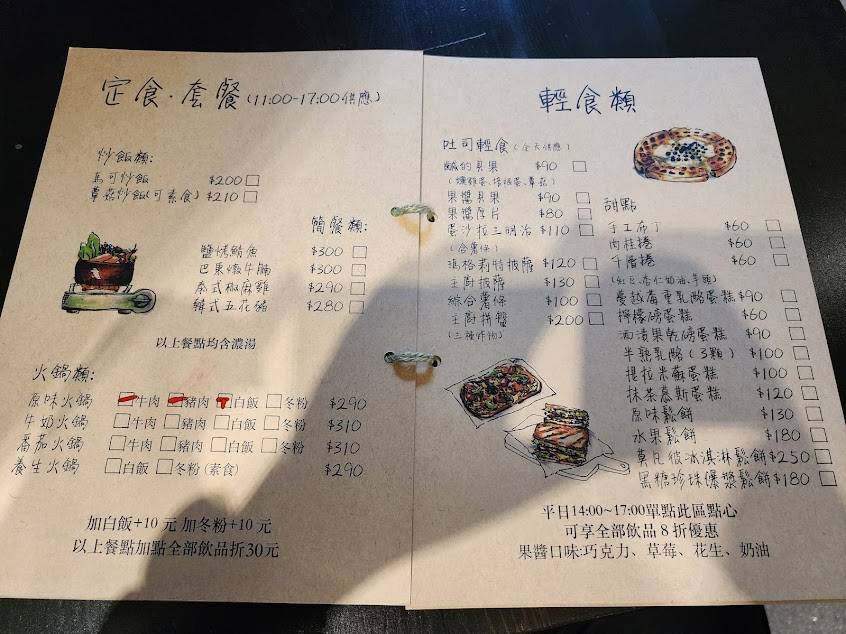 定食·套餐(11:00-17:00供應)
炒飯類:
烏可炒飯 $200
蕈菇炒飯(可素食) $210
簡餐類:
鹽烤鯖魚 $300
巴東燉牛腩 $300
泰式椒麻雞 $290
韓式五花豬 $280
以上餐點均含濃湯
火鍋類:
原味火鍋 牛肉 豬肉 白飯 冬粉 $290
牛奶火鍋 牛肉 豬肉 白飯 冬粉 $310
番茄火鍋 牛肉 豬肉 白飯 冬粉 $310
養生火鍋 白飯 冬粉(素食) $290
加白飯+10元 加冬粉+10元
以上餐點加點全部飲品折30元
輕食類
吐司輕食(全天供應)
鹹的貝果 $90
(燻雞蛋、培根蛋、蕈菇)
果醬貝果 $90
果醬厚片 $80
蛋沙拉三明治 $110
(含薯條)
瑪格莉特披薩 $120
主廚披薩 $130
綜合薯條 $100
主廚拼盤 $200
(三種炸物)
甜點
手工布丁 $60
肉桂捲 $60
千層捲 $60
(紅豆、杏仁奶油、芋頭)
蔓越莓重乳酪蛋糕 $90
檸檬磅蛋糕 $60
酒漬果乾磅蛋糕 $90
半熟乳酪(3顆) $100
提拉米蘇蛋糕 $100
抹茶慕斯蛋糕 $120
原味鬆餅 $130
水果鬆餅 $180
莫凡彼冰淇淋鬆餅 $250
黑糖珍珠爆漿鬆餅 $180
平日14:00~17:00單點此區點心
可享全部飲品8折優惠
果醬口味:巧克力、草莓、花生、奶油